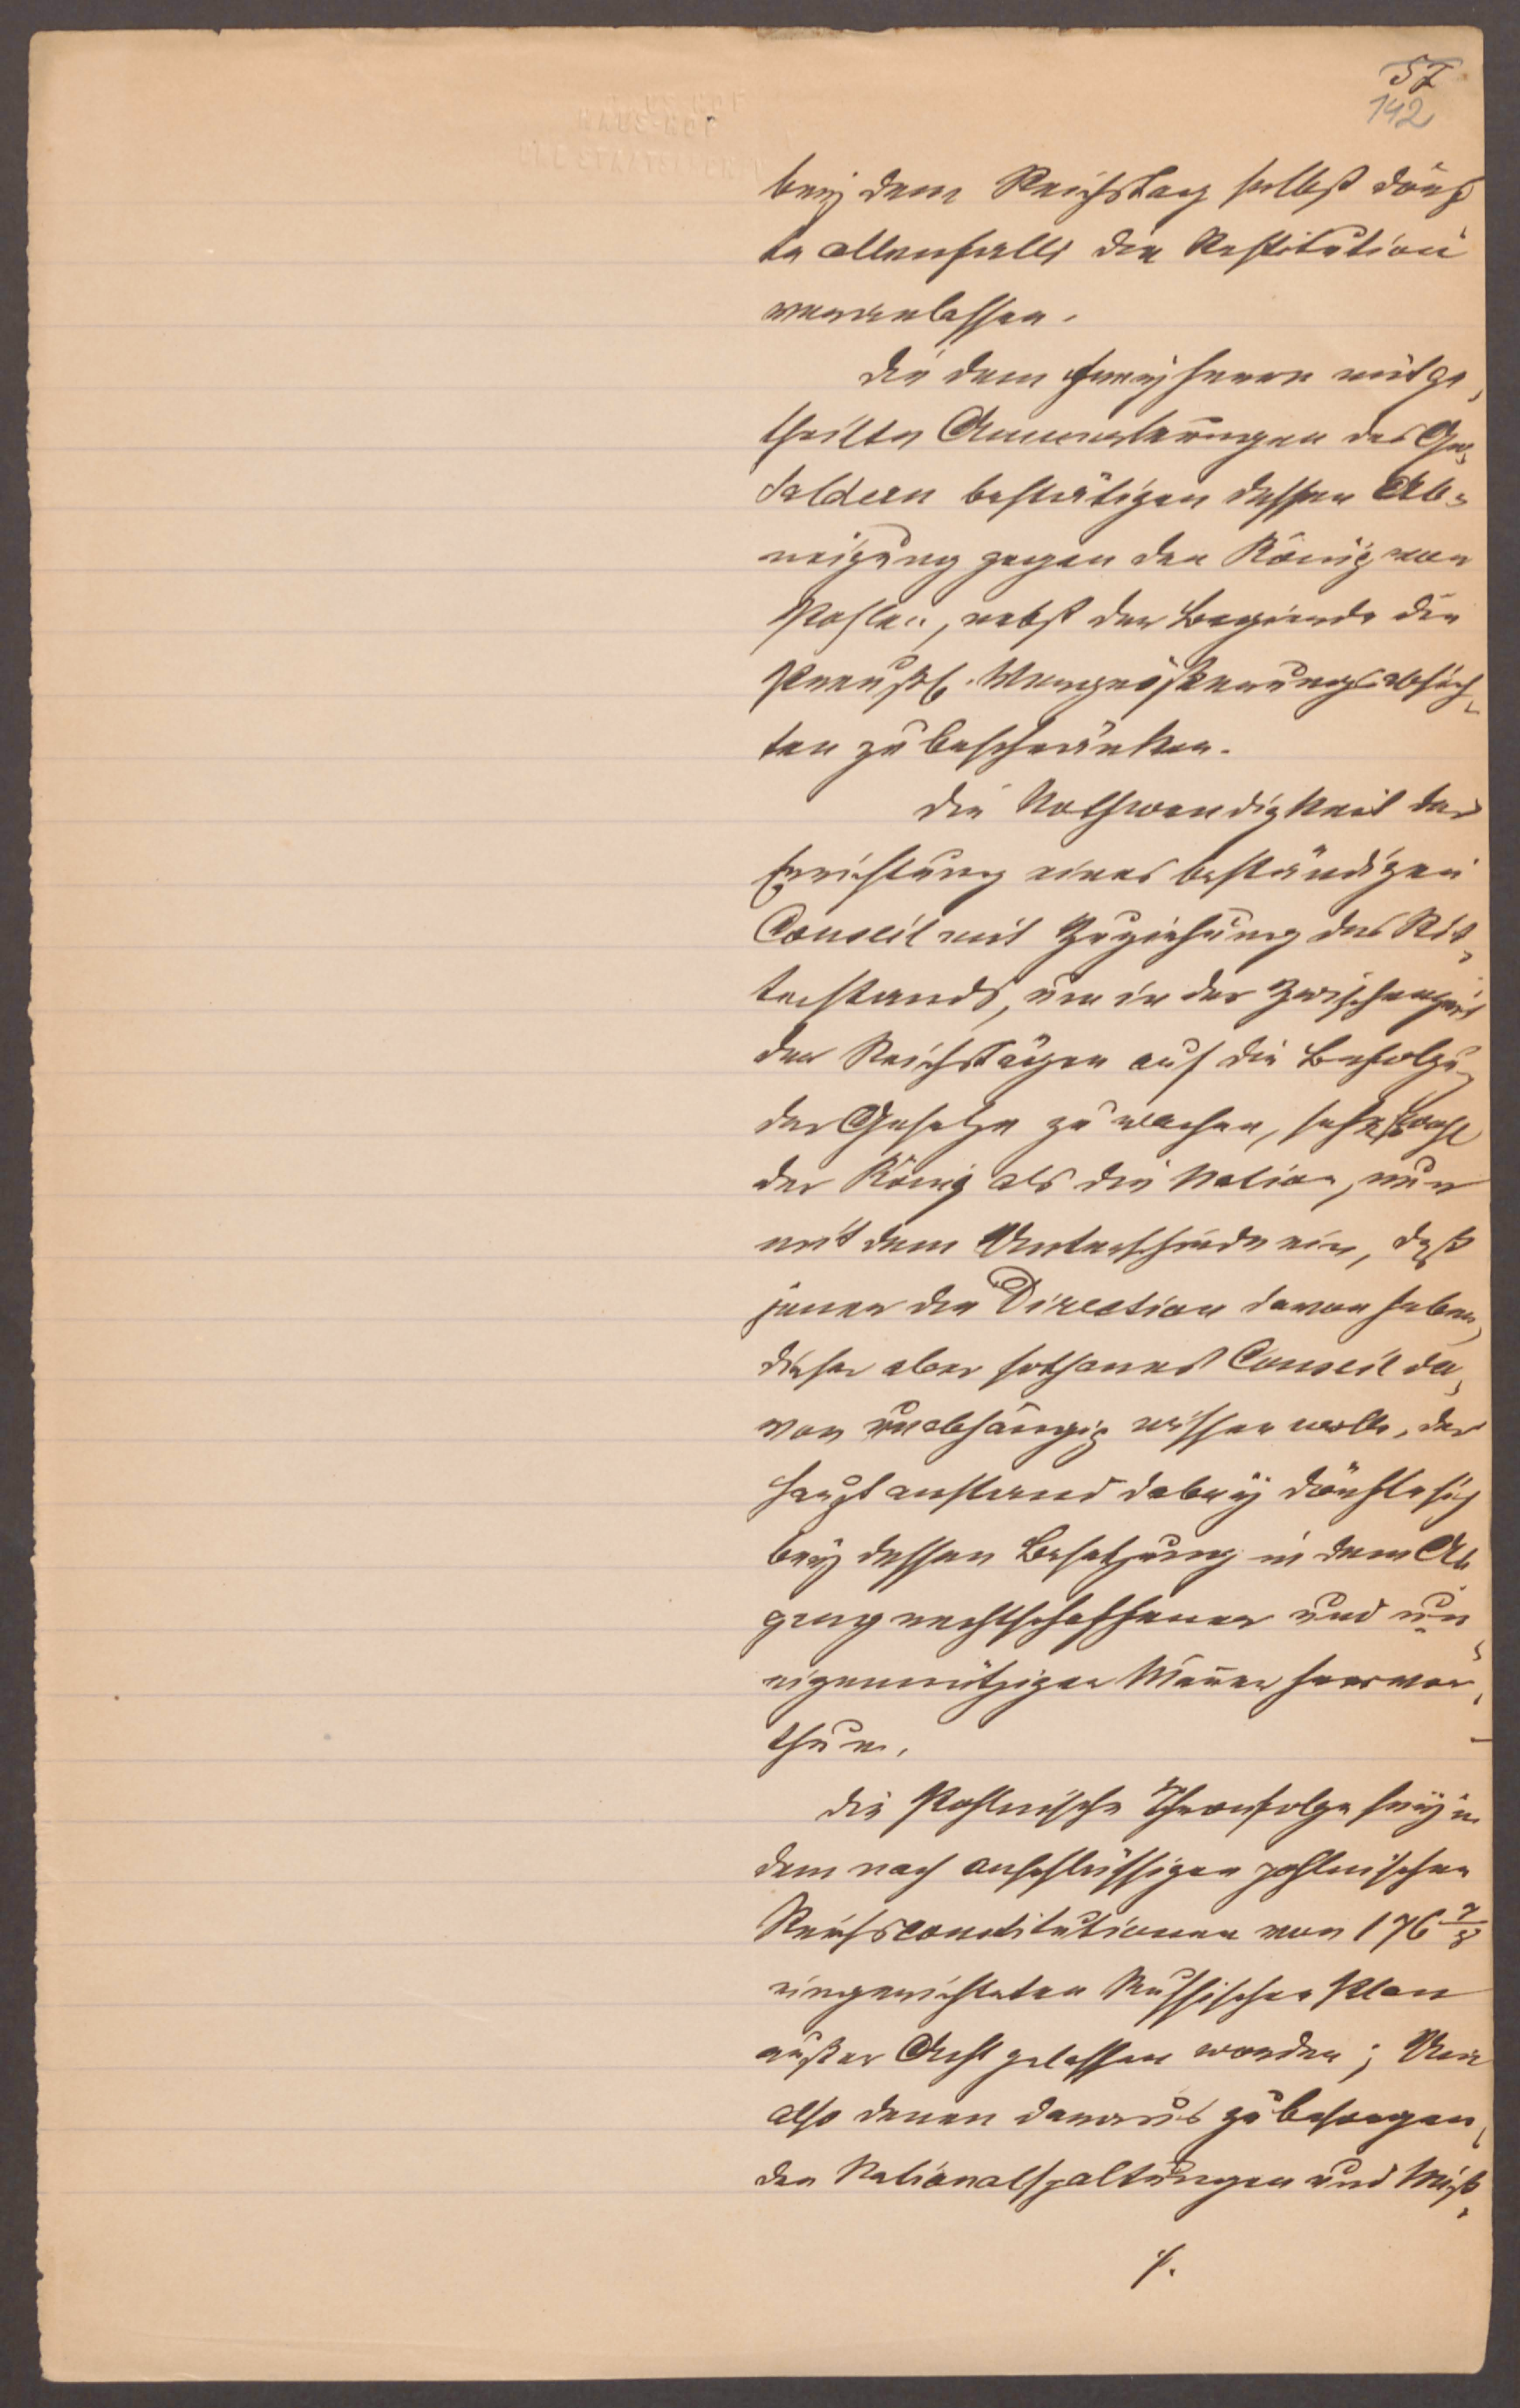 57
142
HAUS-HOF
UND STAATSARCHIV
bey dem Reichstag selbst dörf
te allenfalls die Restitution
veranlassen.
Die dem Freyherrn mitge,
theilte Anmerkungen des Gu,
saldern bestätigen dessen Ab,
neigung gegen den König von
Pohlen, nebst der Begierde die
Preußs. Vergrößerungsabsich,
ten zu beschränken.
Die Nothwendigkeit der
Errichtung eines beständigen
Conseil mit Zuziehung des Rit,
terstands, um in der Zwischenzeit
der Reichstägen auf die Befolgu-
der Gesetze zu wachen, sehe sowohl
der König als die Nation, nur
mit dem Unterschiede ein, daß
jener die Direction davon haben,
diese aber sothanes Conseil da,
von unabhängig wissen wolle, der
Hauptanstand dabey dörfte sich
bey dessen Besetzung in dem Ab
gang rechtschaffener und un
eigennütziger Männer hervor,
thun.
Die Pohlnische Thronfolge sey in
dem nach anschlüssigen pohlnischen
Reichsconstitutionen von 176 7/8
eingerichteten Russischen Plan
außer Acht gelassen worden; Um
also denen daraus zu besorgen,
den Nationalspaltungen und Miß,
./.